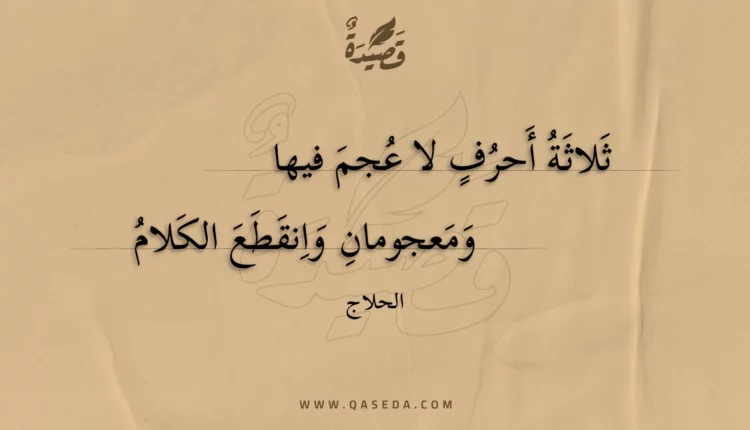 قَصِيْدَةٌ
ثَلاثَةُ أَحرُفٍ لا عُجمَ فيها
وَمَعجومانِ وَاِنقَطَعَ الكَلامُ
الحلاج
WWW.QASEDA.COM